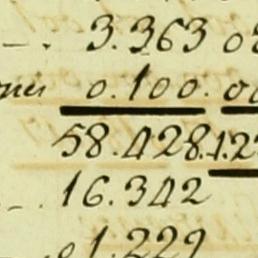 3.363 0
0.100.
58.428.1.2
16.342
1.229